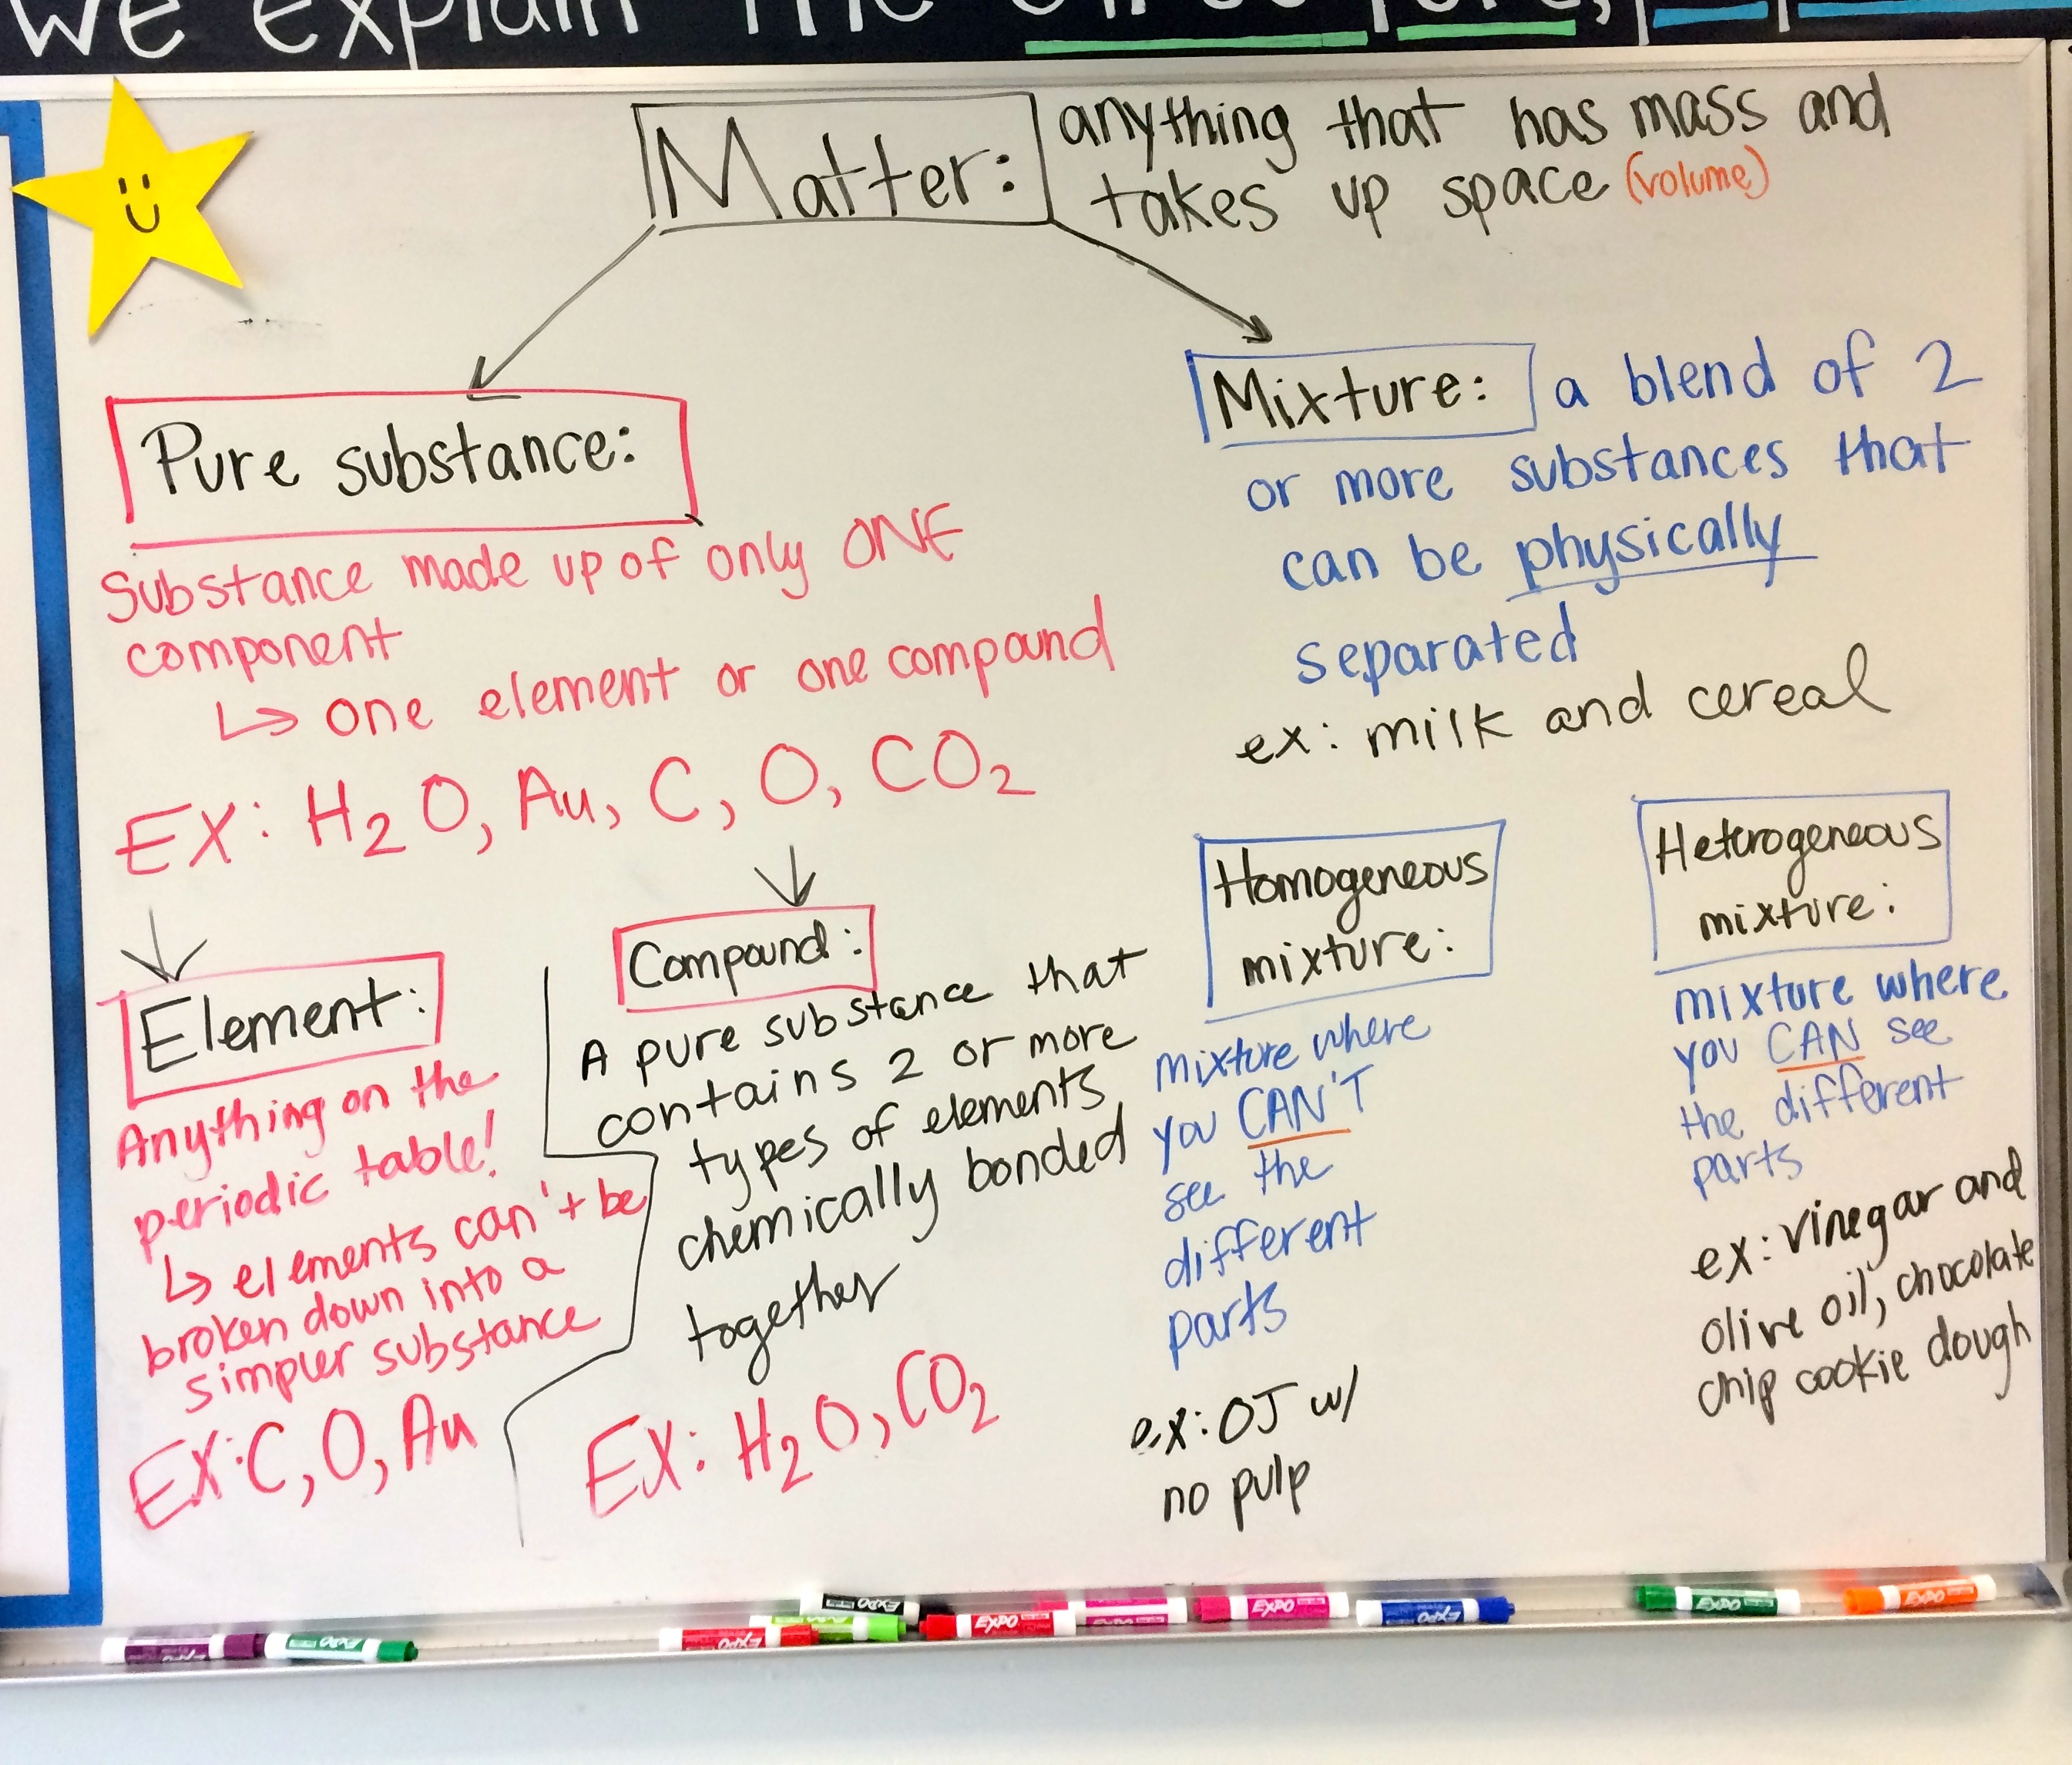 we explain the structure,
Matter: anything that has mass and
takes up space (volume)
Pure substance:
Substance made up of only ONE
component
↳ one element or one compound
EX: H₂O, Au, C, O, CO₂
Element:
Anything on the
periodic table!
↳ elements can't be
broken down into a
simpler substance
EX: C, O, Au
Compound:
A pure substance that
contains 2 or more
types of elements
chemically bonded
together
EX: H₂O, CO₂
Mixture: a blend of 2
or more substances that
can be physically
separated
ex: milk and cereal
Homogeneous
mixture:
mixture where
you CAN'T
see the
different
parts
ex: OJ w/
no pulp
Heterogeneous
mixture:
mixture where
you CAN see
the different
parts
ex: vinegar and
olive oil, chocolate
chip cookie dough
EXPO
EXPO
EXPO
EXPO
EXPO
EXPO
EXPO
EXPO